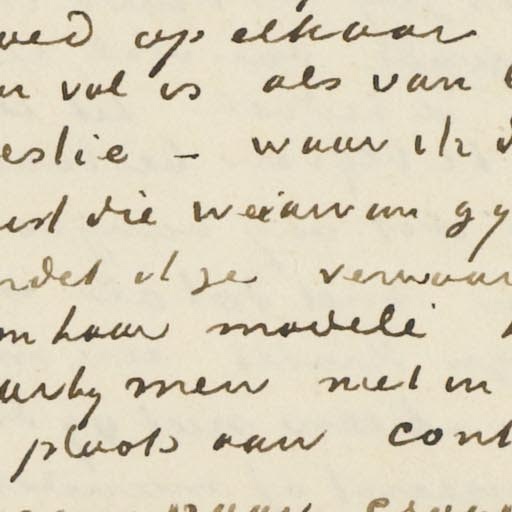 oed op elkaar
n vol is als van
estie – waar ik
ist die waarvan gy
ndet ik ze verwaar
om haar modelé
arby men niet in
plaats aan cont